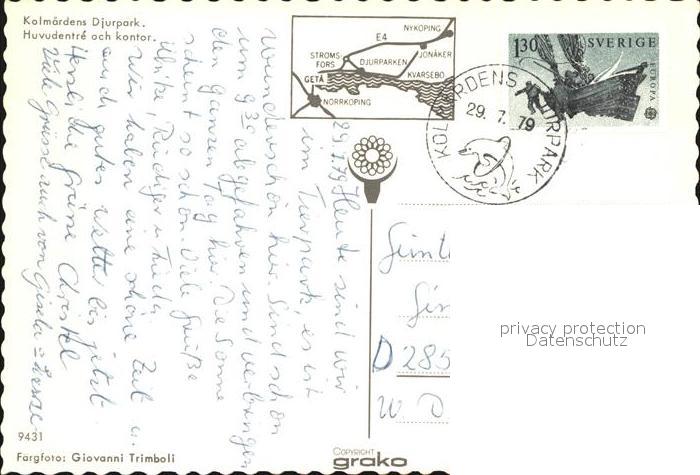 Kolmårdens Djurpark.
Huvudentré och kontor.
NYKÖPING
E4
STRÖMS-
FORS
JONÅKER
DJURPARKEN
GETÅ
KVARSEBO
NORRKÖPING
1.30 SVERIGE
EUROPA
KOLMÅRDENS DJURPARK
29. 7. 79
29.7.79 Heute sind wir
im Tierpark, es ist
wunderschön hier. Sind schon
um 9 30 abgefahren und verbringen
den ganzen Tag hier. Die Sonne
scheint so schön. Viele Grüße
Ulrike, Rüdiger u. Frieda
Wir haben eine schöne Zeit u.
auch gutes Wetter bis jetzt.
Herzliche Grüsse Christel
Viele Grüsse auch von Gisela
D 285
W. D
privacy protection
Datenschutz
9431
Fargfoto: Giovanni Trimboli
COPYRIGHT
grako